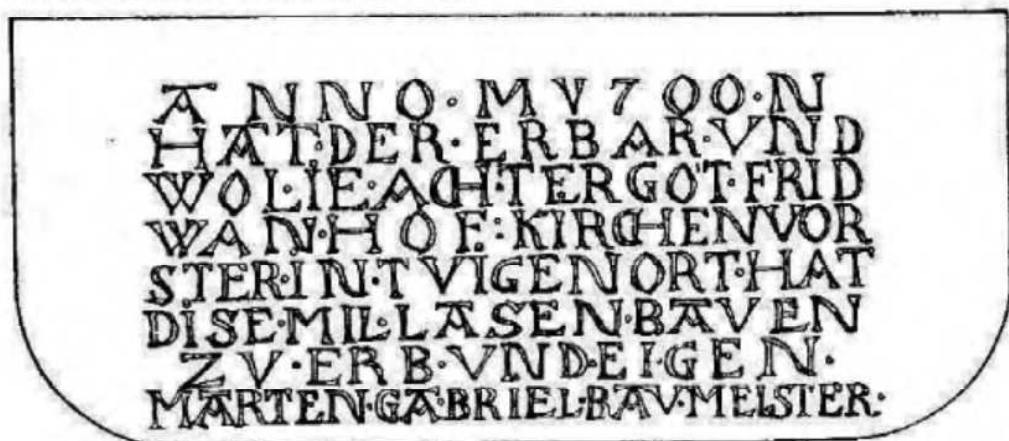 ANNO·MV700·N
HAT·DER·ERBAR·VND
WOL·IE·ACH·TERGOT·FRID
WAN·HOF·KIRCHENVOR
STER·IN·TVIGENORT·HAT
DISE·MIL·LASEN·BAVEN
ZV·ERB·VND·EIGEN·
MARTEN·GABRIEL·BAV·MEISTER·